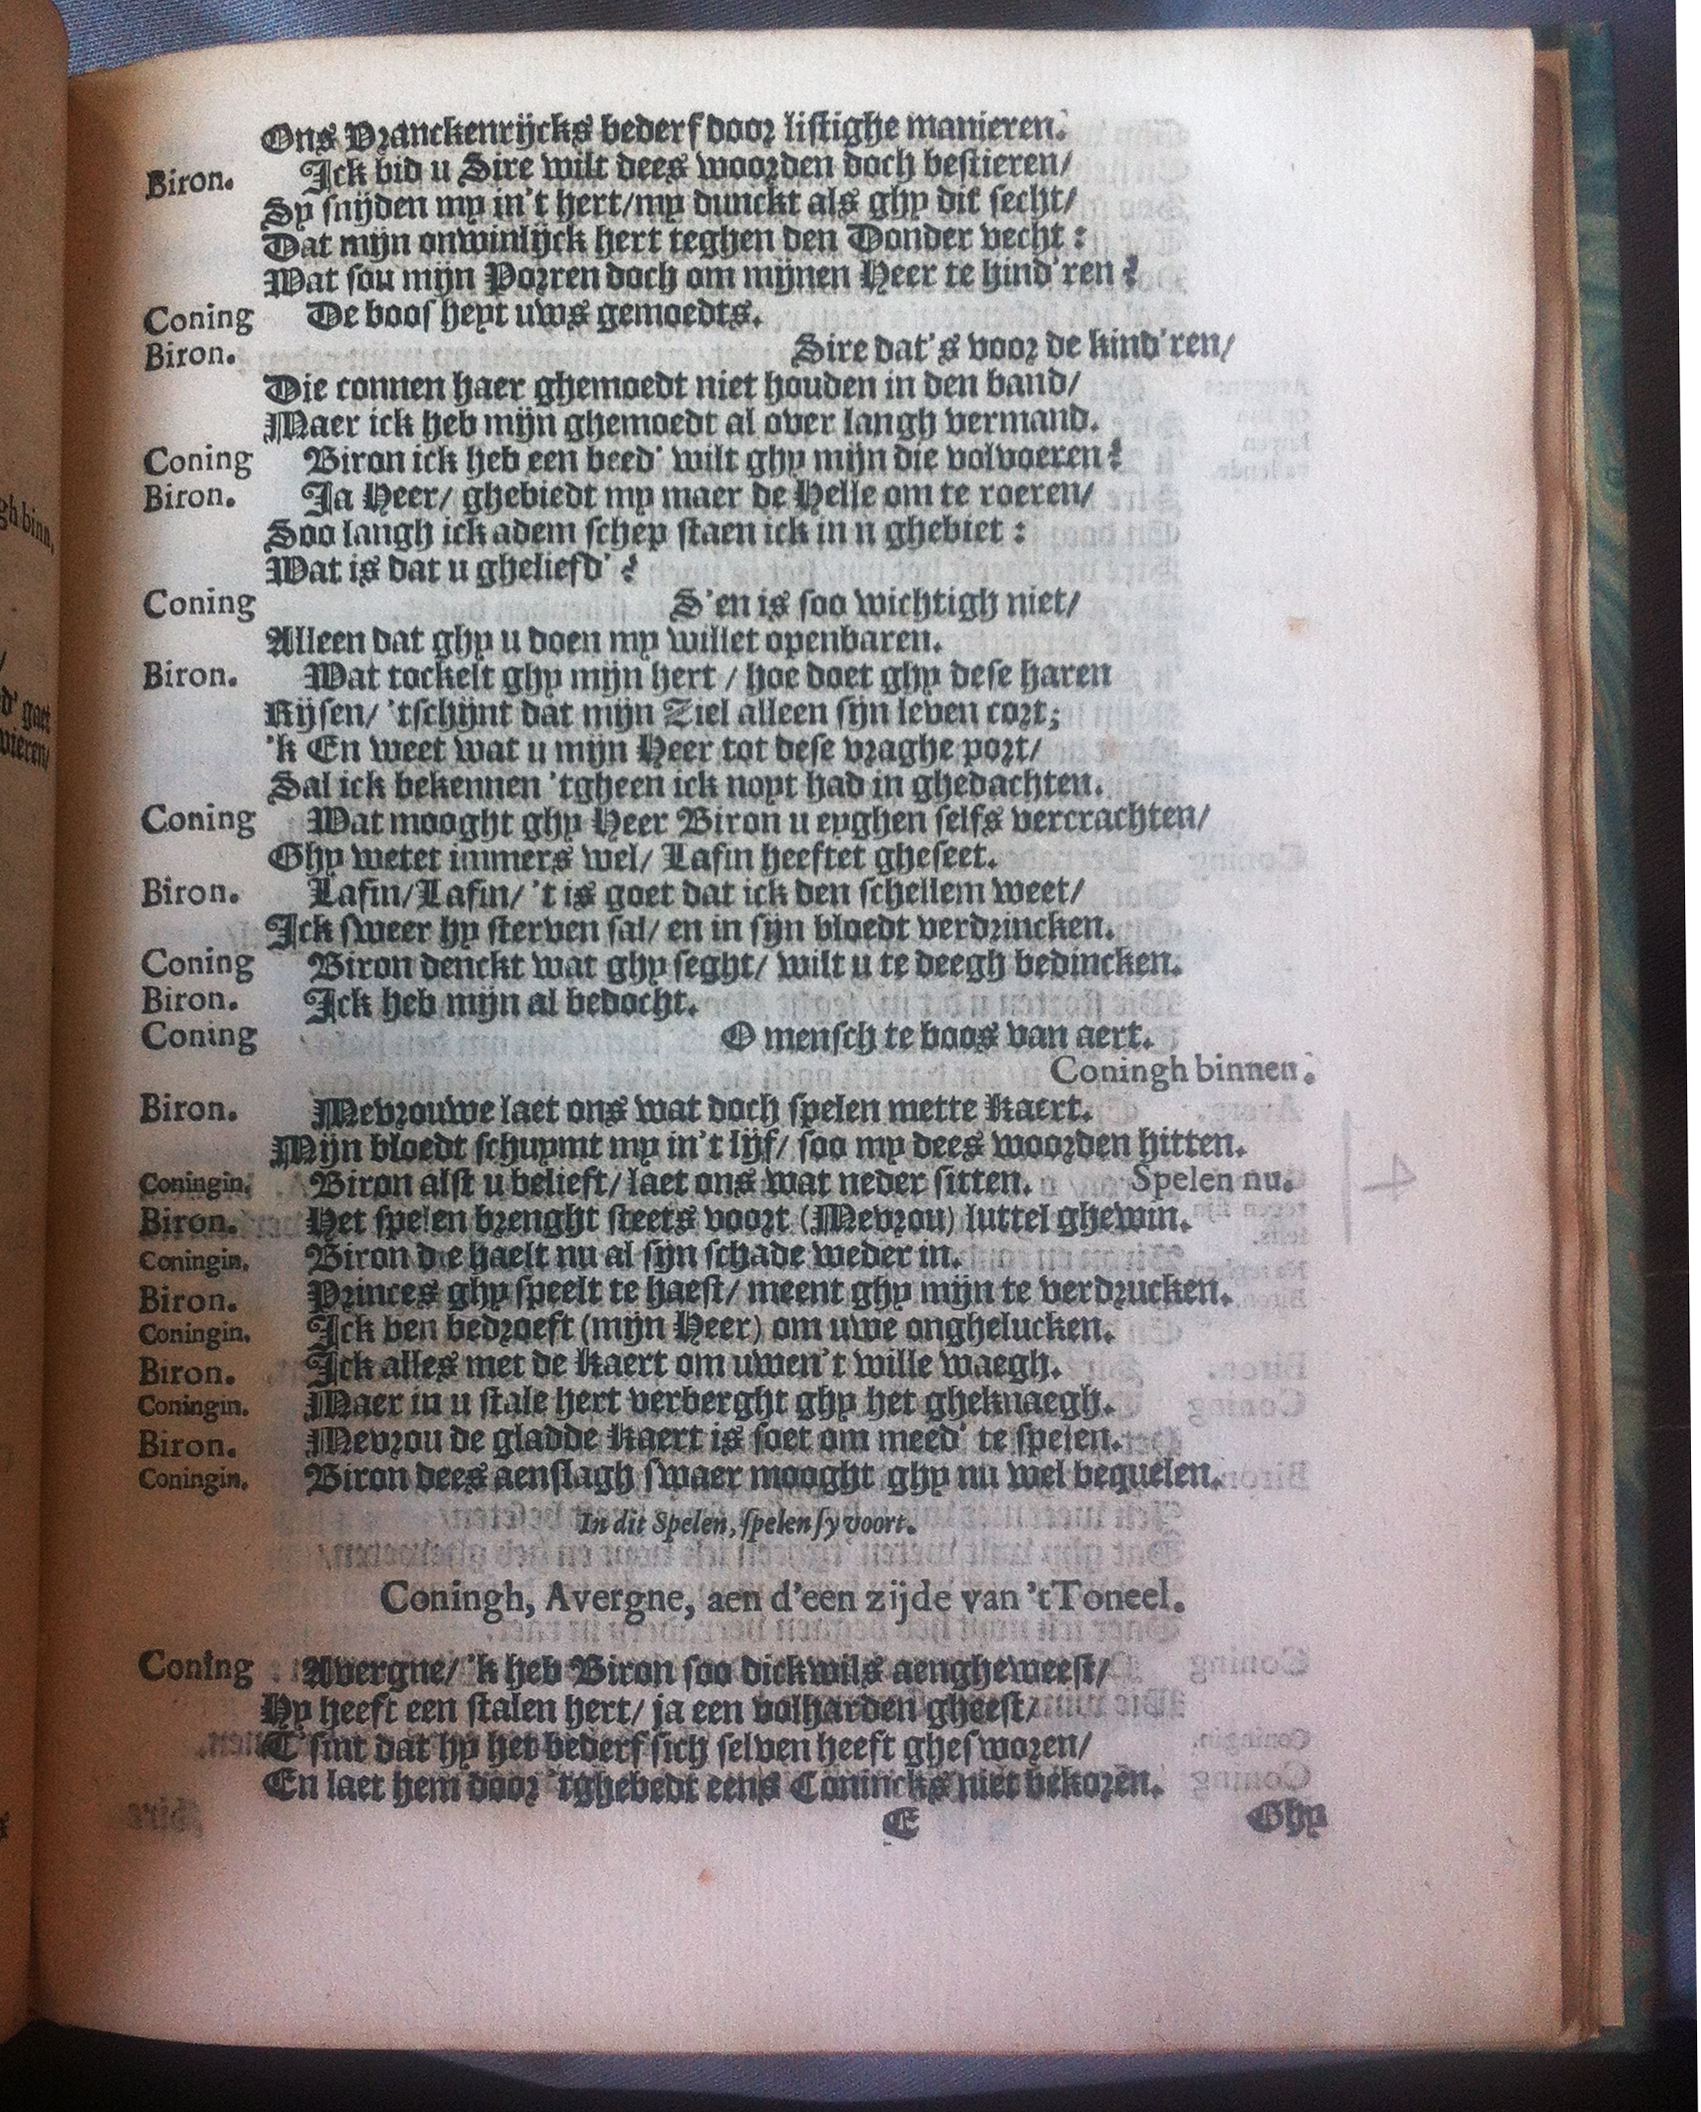 Ons Vranckenrijcks bederf door listighe manieren.
Biron. Ick bid u Sire wilt dees woorden doch bestieren/
Sy snijden my in't hert/my dunckt als ghy dit secht/
Dat mijn onwinlijck hert teghen den Donder vecht:
Wat sou mijn Porren doch om mijnen Heer te hind'ren?
Coning De boosheyt uws gemoedts.
Biron. Sire dat's voor de kind'ren/
Die connen haer ghemoedt niet houden in den band/
Maer ick heb mijn ghemoedt al over langh vermand.
Coning Biron ick heb een beed' wilt ghy mijn die volvoeren?
Biron. Ja Heer/ ghebiedt my maer de Helle om te roeren/
Soo langh ick adem schep staen ick in n ghebiet:
Wat is dat u gheliefd'?
Coning S'en is soo wichtigh niet/
Alleen dat ghy u doen my willet openbaren.
Biron. Wat tockelt ghy mijn hert / hoe doet ghy dese haren
Rijsen/ 'tschijnt dat mijn Ziel alleen sijn leven cort;
'k En weet wat u mijn Heer tot dese vraghe port/
Sal ick bekennen 'tgheen ick noyt had in ghedachten.
Coning Wat mooght ghy Heer Biron u eyghen selfs vercrachten/
Ghy wetet immers wel/ Lafin heeftet gheseet.
Biron. Lafin/Lafin/ 't is goet dat ick den schellem weet/
Ick sweer hy sterven sal/ en in sijn bloedt verdrincken.
Coning Biron denckt wat ghy seght/ wilt u te deegh bedincken.
Biron. Ick heb mijn al bedocht.
Coning O mensch te boos van aert.
Coningh binnen.
Biron. Mevrouwe laet ons wat doch spelen mette Kaert.
Mijn bloedt schuymt my in't lijf/ soo my dees woorden hitten.
Coningin. Biron alst u belieft/ laet ons wat neder sitten. Spelen nu.
Biron. Het spelen brenght steets voort (Mevrou) luttel ghewin.
Coningin. Biron die haelt nu al sijn schade weder in.
Biron. Princes ghy speelt te haest/ meent ghy mijn te verdrucken.
Coningin. Ick ben bedroeft (mijn Heer) om uwe onghelucken.
Biron. Ick alles met de Kaert om uwen't wille waegh.
Coningin. Maer in u stale hert verberght ghy het gheknaegh.
Biron. Mevrou de gladde Kaert is soet om meed' te spelen.
Coningin. Biron dees aenslagh swaer mooght ghy nu wel bequelen.
In dit Spelen, spelen sy voort.
Coningh, Avergne, aen d'een zijde van 't Toneel.
Coning Avergne/ 'k heb Biron soo dickwils aengheweest/
Hy heeft een stalen hert/ ja een volharden gheest/
T'sint dat hy het bederf sich selven heeft ghesworen/
En laet hem door 'tghebedt eens Conincks niet bekoren.
E Ghy